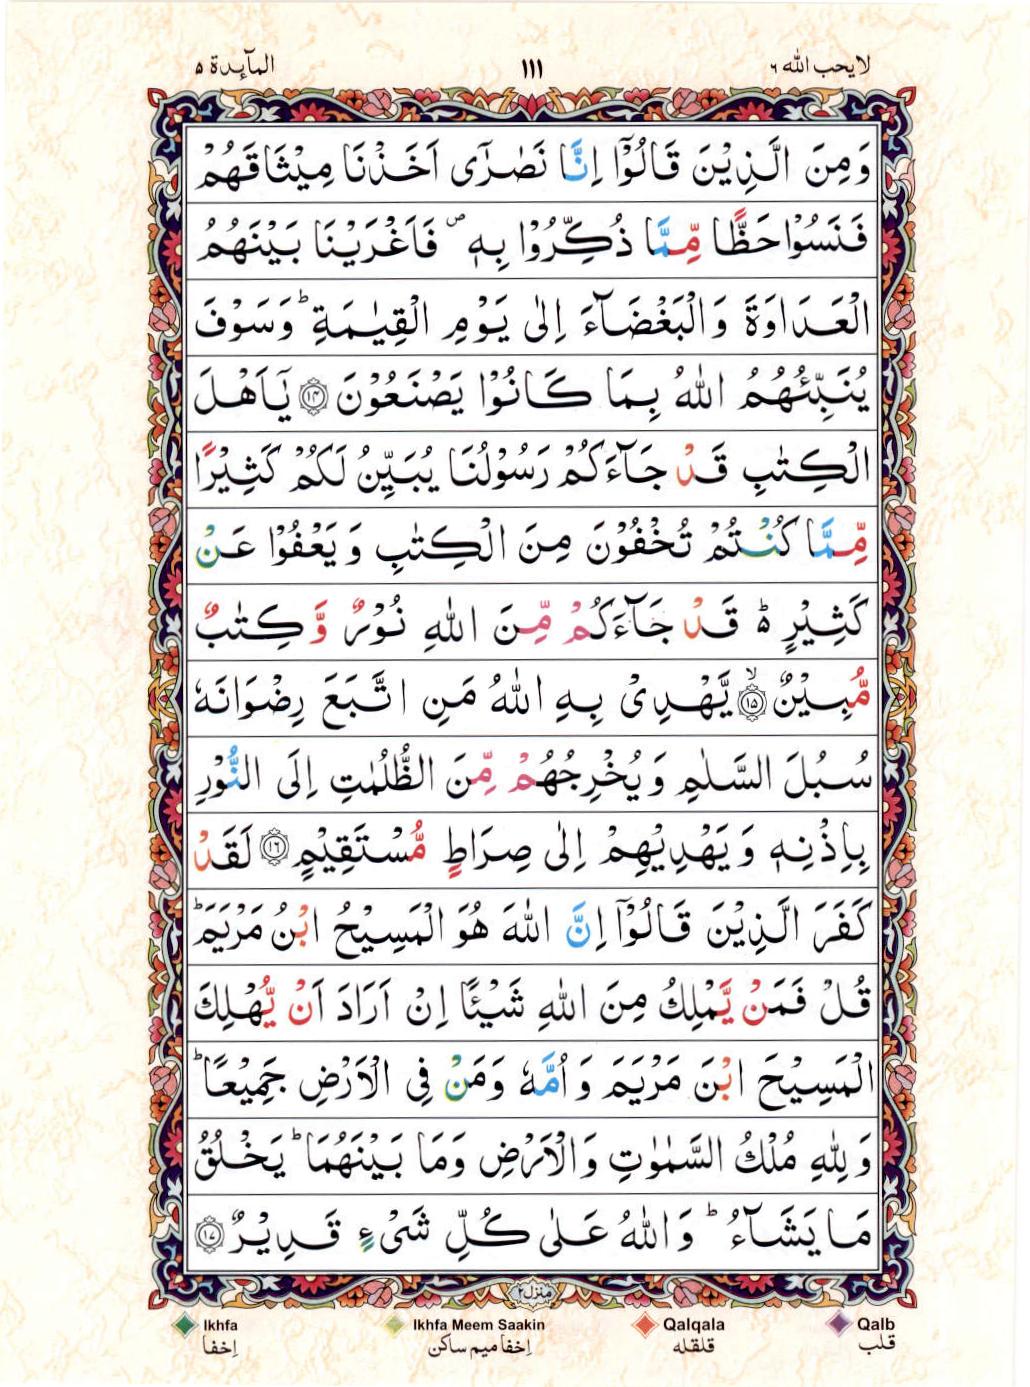 المآئدة ٥
١١١
لا يحب الله ٦
وَمِنَ الَّذِيْنَ قَالُوْٓا اِنَّا نَصٰرٰٓى اَخَذْنَا مِيْثَاقَهُمْ
فَنَسُوْا حَظًّا مِّمَّا ذُكِّرُوْا بِهٖ ۪ فَاَغْرَيْنَا بَيْنَهُمُ
الْعَدَاوَةَ وَالْبَغْضَآءَ اِلٰى يَوْمِ الْقِيٰمَةِ ؕ وَسَوْفَ
يُنَبِّئُهُمُ اللّٰهُ بِمَا كَانُوْا يَصْنَعُوْنَ ﴿۱۴﴾ يٰۤاَهْلَ
الْكِتٰبِ قَدْ جَآءَكُمْ رَسُوْلُنَا يُبَيِّنُ لَكُمْ كَثِيْرًا
مِّمَّا كُنْتُمْ تُخْفُوْنَ مِنَ الْكِتٰبِ وَيَعْفُوْا عَنْ
كَثِيْرٍ ؕ۬ قَدْ جَآءَكُمْ مِّنَ اللّٰهِ نُوْرٌ وَّ كِتٰبٌ
مُّبِيْنٌ ﴿ۙ۱۵﴾ يَّهْدِىْ بِهِ اللّٰهُ مَنِ اتَّبَعَ رِضْوَانَهٗ
سُبُلَ السَّلٰمِ وَيُخْرِجُهُمْ مِّنَ الظُّلُمٰتِ اِلَى النُّوْرِ
بِاِذْنِهٖ وَيَهْدِيْهِمْ اِلٰى صِرَاطٍ مُّسْتَقِيْمٍ ﴿۱۶﴾ لَقَدْ
كَفَرَ الَّذِيْنَ قَالُوْٓا اِنَّ اللّٰهَ هُوَ الْمَسِيْحُ ابْنُ مَرْيَمَ ؕ
قُلْ فَمَنْ يَّمْلِكُ مِنَ اللّٰهِ شَيْئًا اِنْ اَرَادَ اَنْ يُّهْلِكَ
الْمَسِيْحَ ابْنَ مَرْيَمَ وَاُمَّهٗ وَمَنْ فِى الْاَرْضِ جَمِيْعًا ؕ
وَلِلّٰهِ مُلْكُ السَّمٰوٰتِ وَالْاَرْضِ وَمَا بَيْنَهُمَا ؕ يَخْلُقُ
مَا يَشَآءُ ؕ وَاللّٰهُ عَلٰى كُلِّ شَىْءٍ قَدِيْرٌ ﴿۱۷﴾
منزل ٢
Ikhfa
Ikhfa Meem Saakin
Qalqala
Qalb
اِخفا
اِخفا ميم ساكن
قلقله
قلب